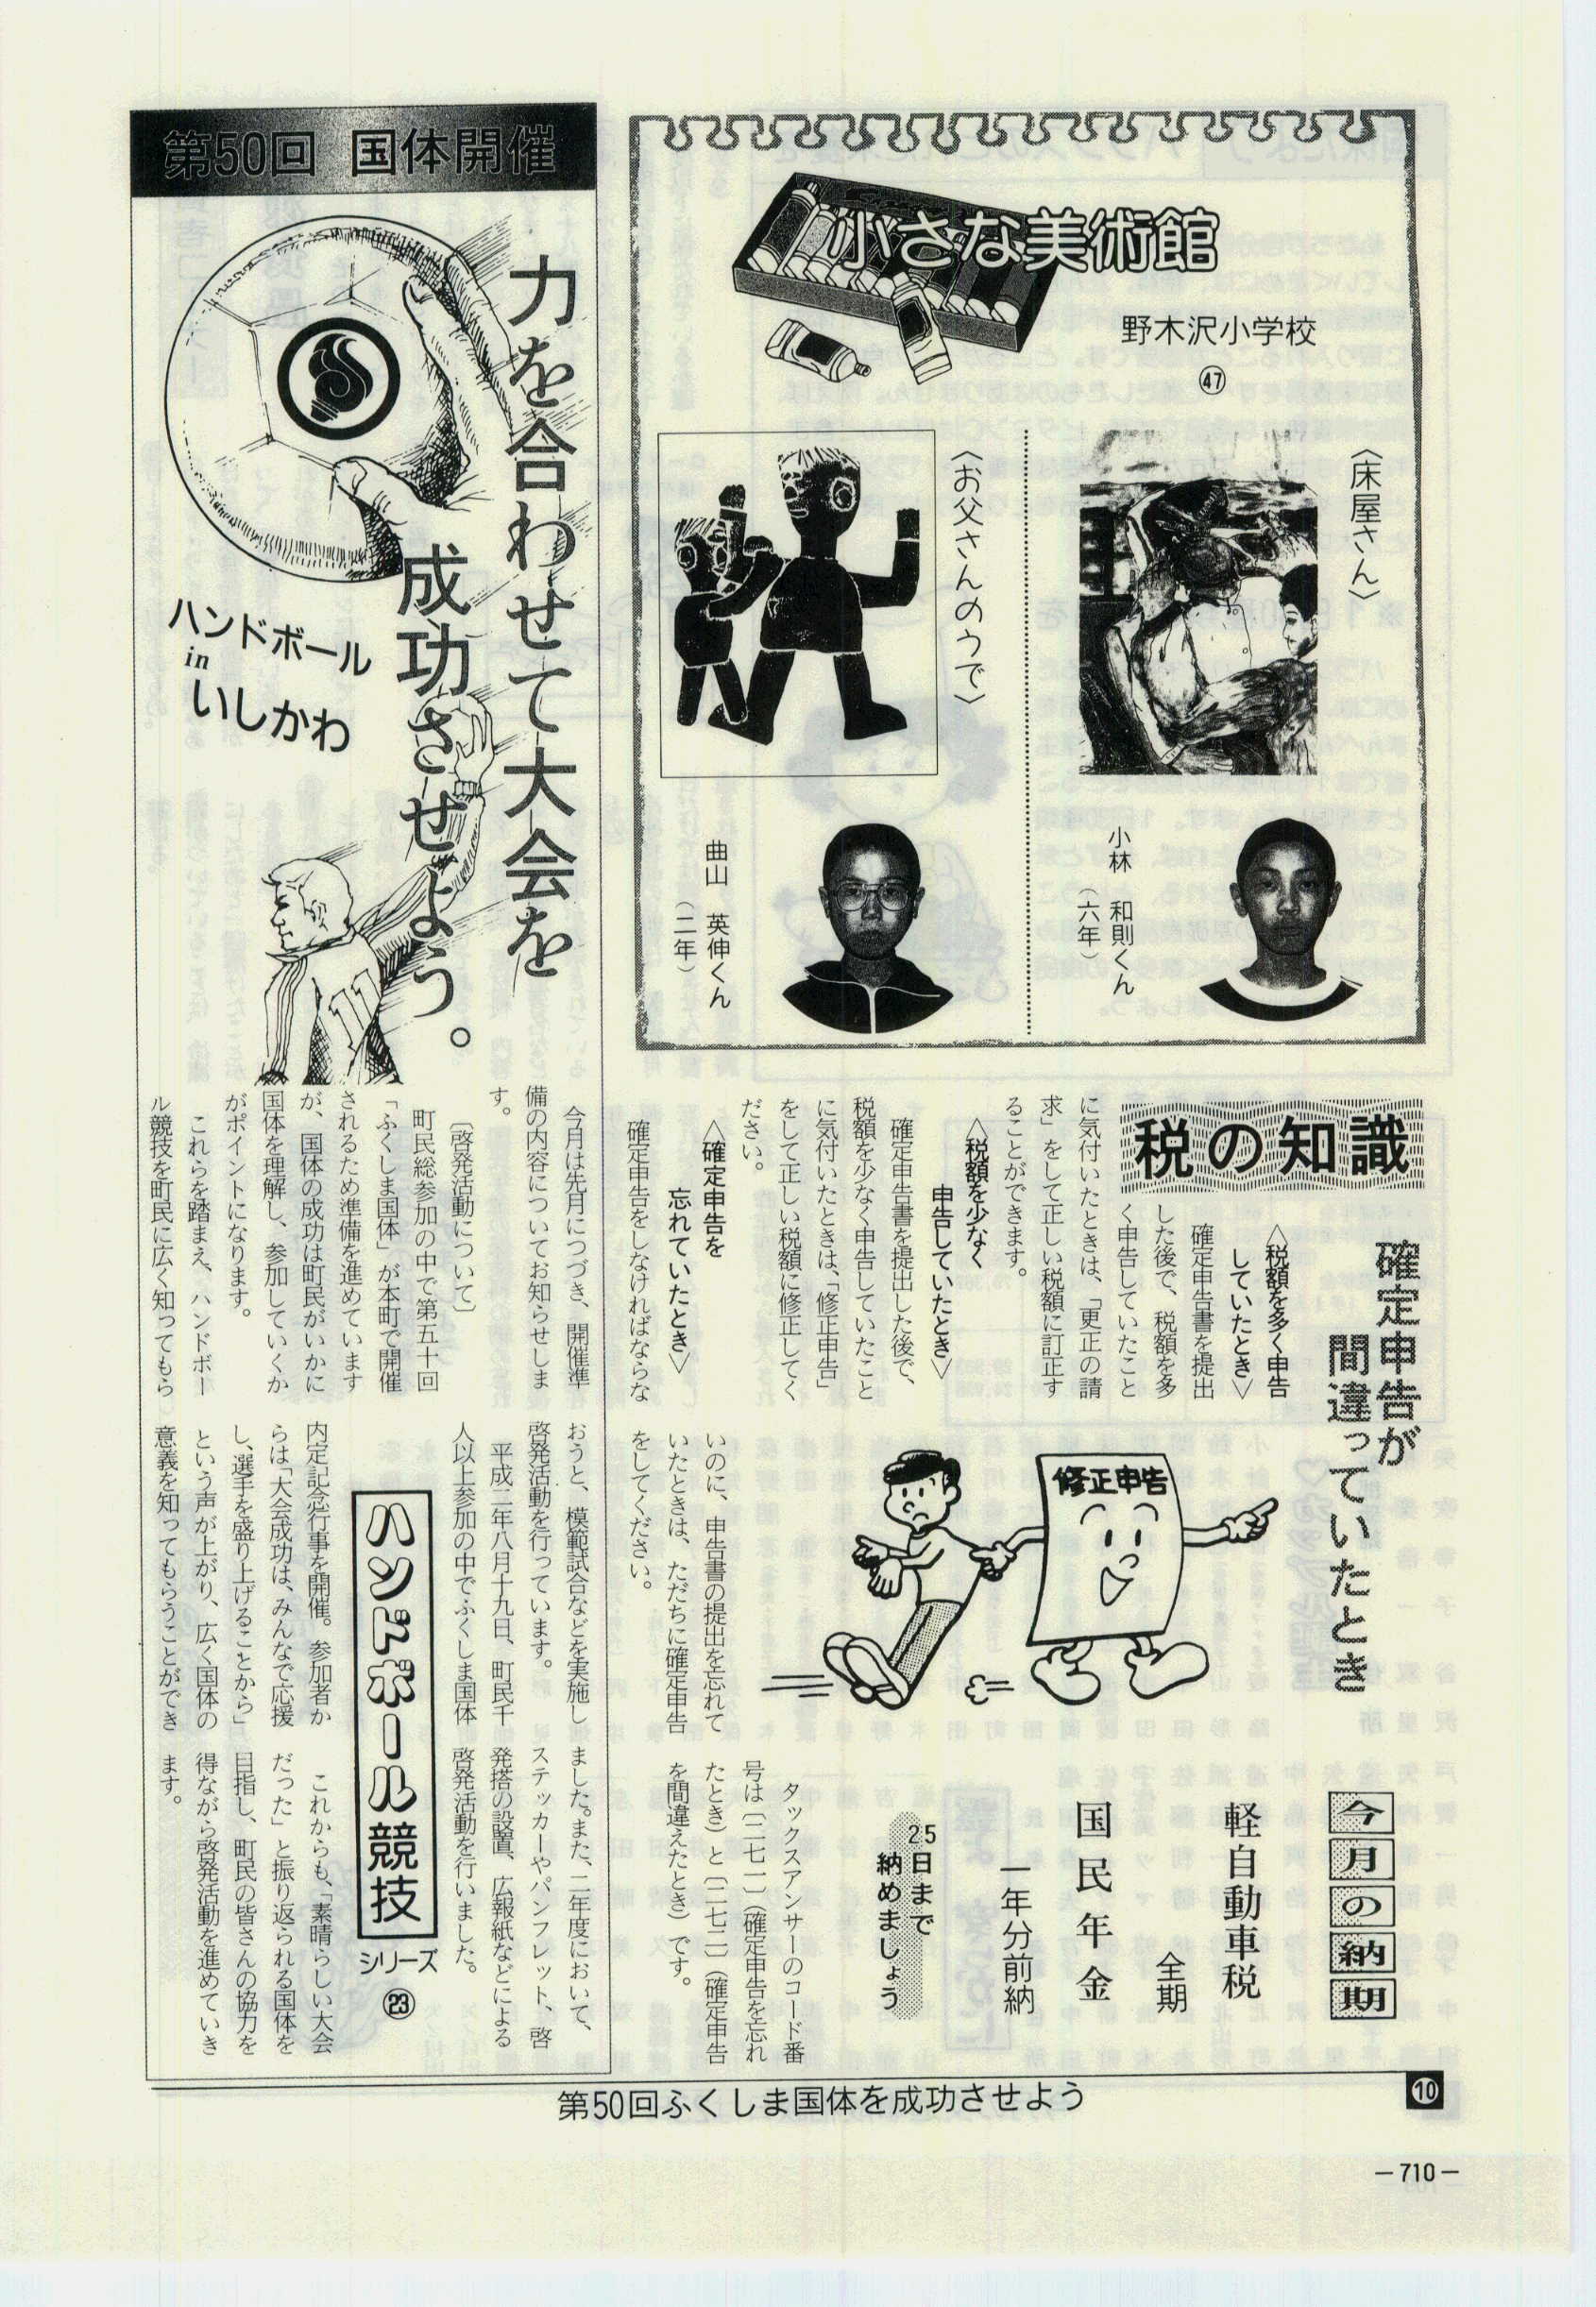 小さな美術館
野木沢小学校
㊼
〈床屋さん〉
小林 和則くん
(六年)
〈お父さんのうで〉
曲山 英伸くん
(二年)
税の知識
確定申告が
間違っていたとき
△税額を多く申告
していたとき▽
確定申告書を提出
した後で、税額を多
く申告していたこと
に気付いたときは、「更正の請
求」をして正しい税額に訂正す
ることができます。
△税額を少なく
申告していたとき▽
確定申告書を提出した後で、
税額を少なく申告していたこと
に気付いたときは、「修正申告」
をして正しい税額に修正してく
ださい。
△確定申告を
忘れていたとき▽
確定申告をしなければならな
いのに、申告書の提出を忘れて
いたときは、ただちに確定申告
をしてください。
修正申告
タックスアンサーのコード番
号は〔二七一一〕(確定申告を忘れ
たとき)と〔二七二二〕(確定申告
を間違えたとき)です。
今月の納期
軽自動車税
全期
国民年金
一年分前納
25日まで
納めましょう
第50回 国体開催
力を合わせて大会を
成功させよう。
ハンドボール
in
いしかわ
11
今月は先月につづき、開催準
備の内容についてお知らせしま
す。
〔啓発活動について〕
町民総参加の中で第五十回
「ふくしま国体」が本町で開催
されるため準備を進めています
が、国体の成功は町民がいかに
国体を理解し、参加していくか
がポイントになります。
これらを踏まえ、ハンドボー
ル競技を町民に広く知ってもら
おうと、模範試合などを実施し
啓発活動を行っています。
平成二年八月十九日、町民千
人以上参加の中でふくしま国体
内定記念行事を開催。参加者か
らは「大会成功は、みんなで応援
し、選手を盛り上げることから」
という声が上がり、広く国体の
意義を知ってもらうことができ
ました。また、二年度において、
ステッカーやパンフレット、啓
発搭の設置、広報紙などによる
啓発活動を行いました。
これからも、「素晴らしい大会
だった」と振り返られる国体を
目指し、町民の皆さんの協力を
得ながら啓発活動を進めていき
ます。
ハンドボール競技
シリーズ
㉓
第50回ふくしま国体を成功させよう
⑩
－710－